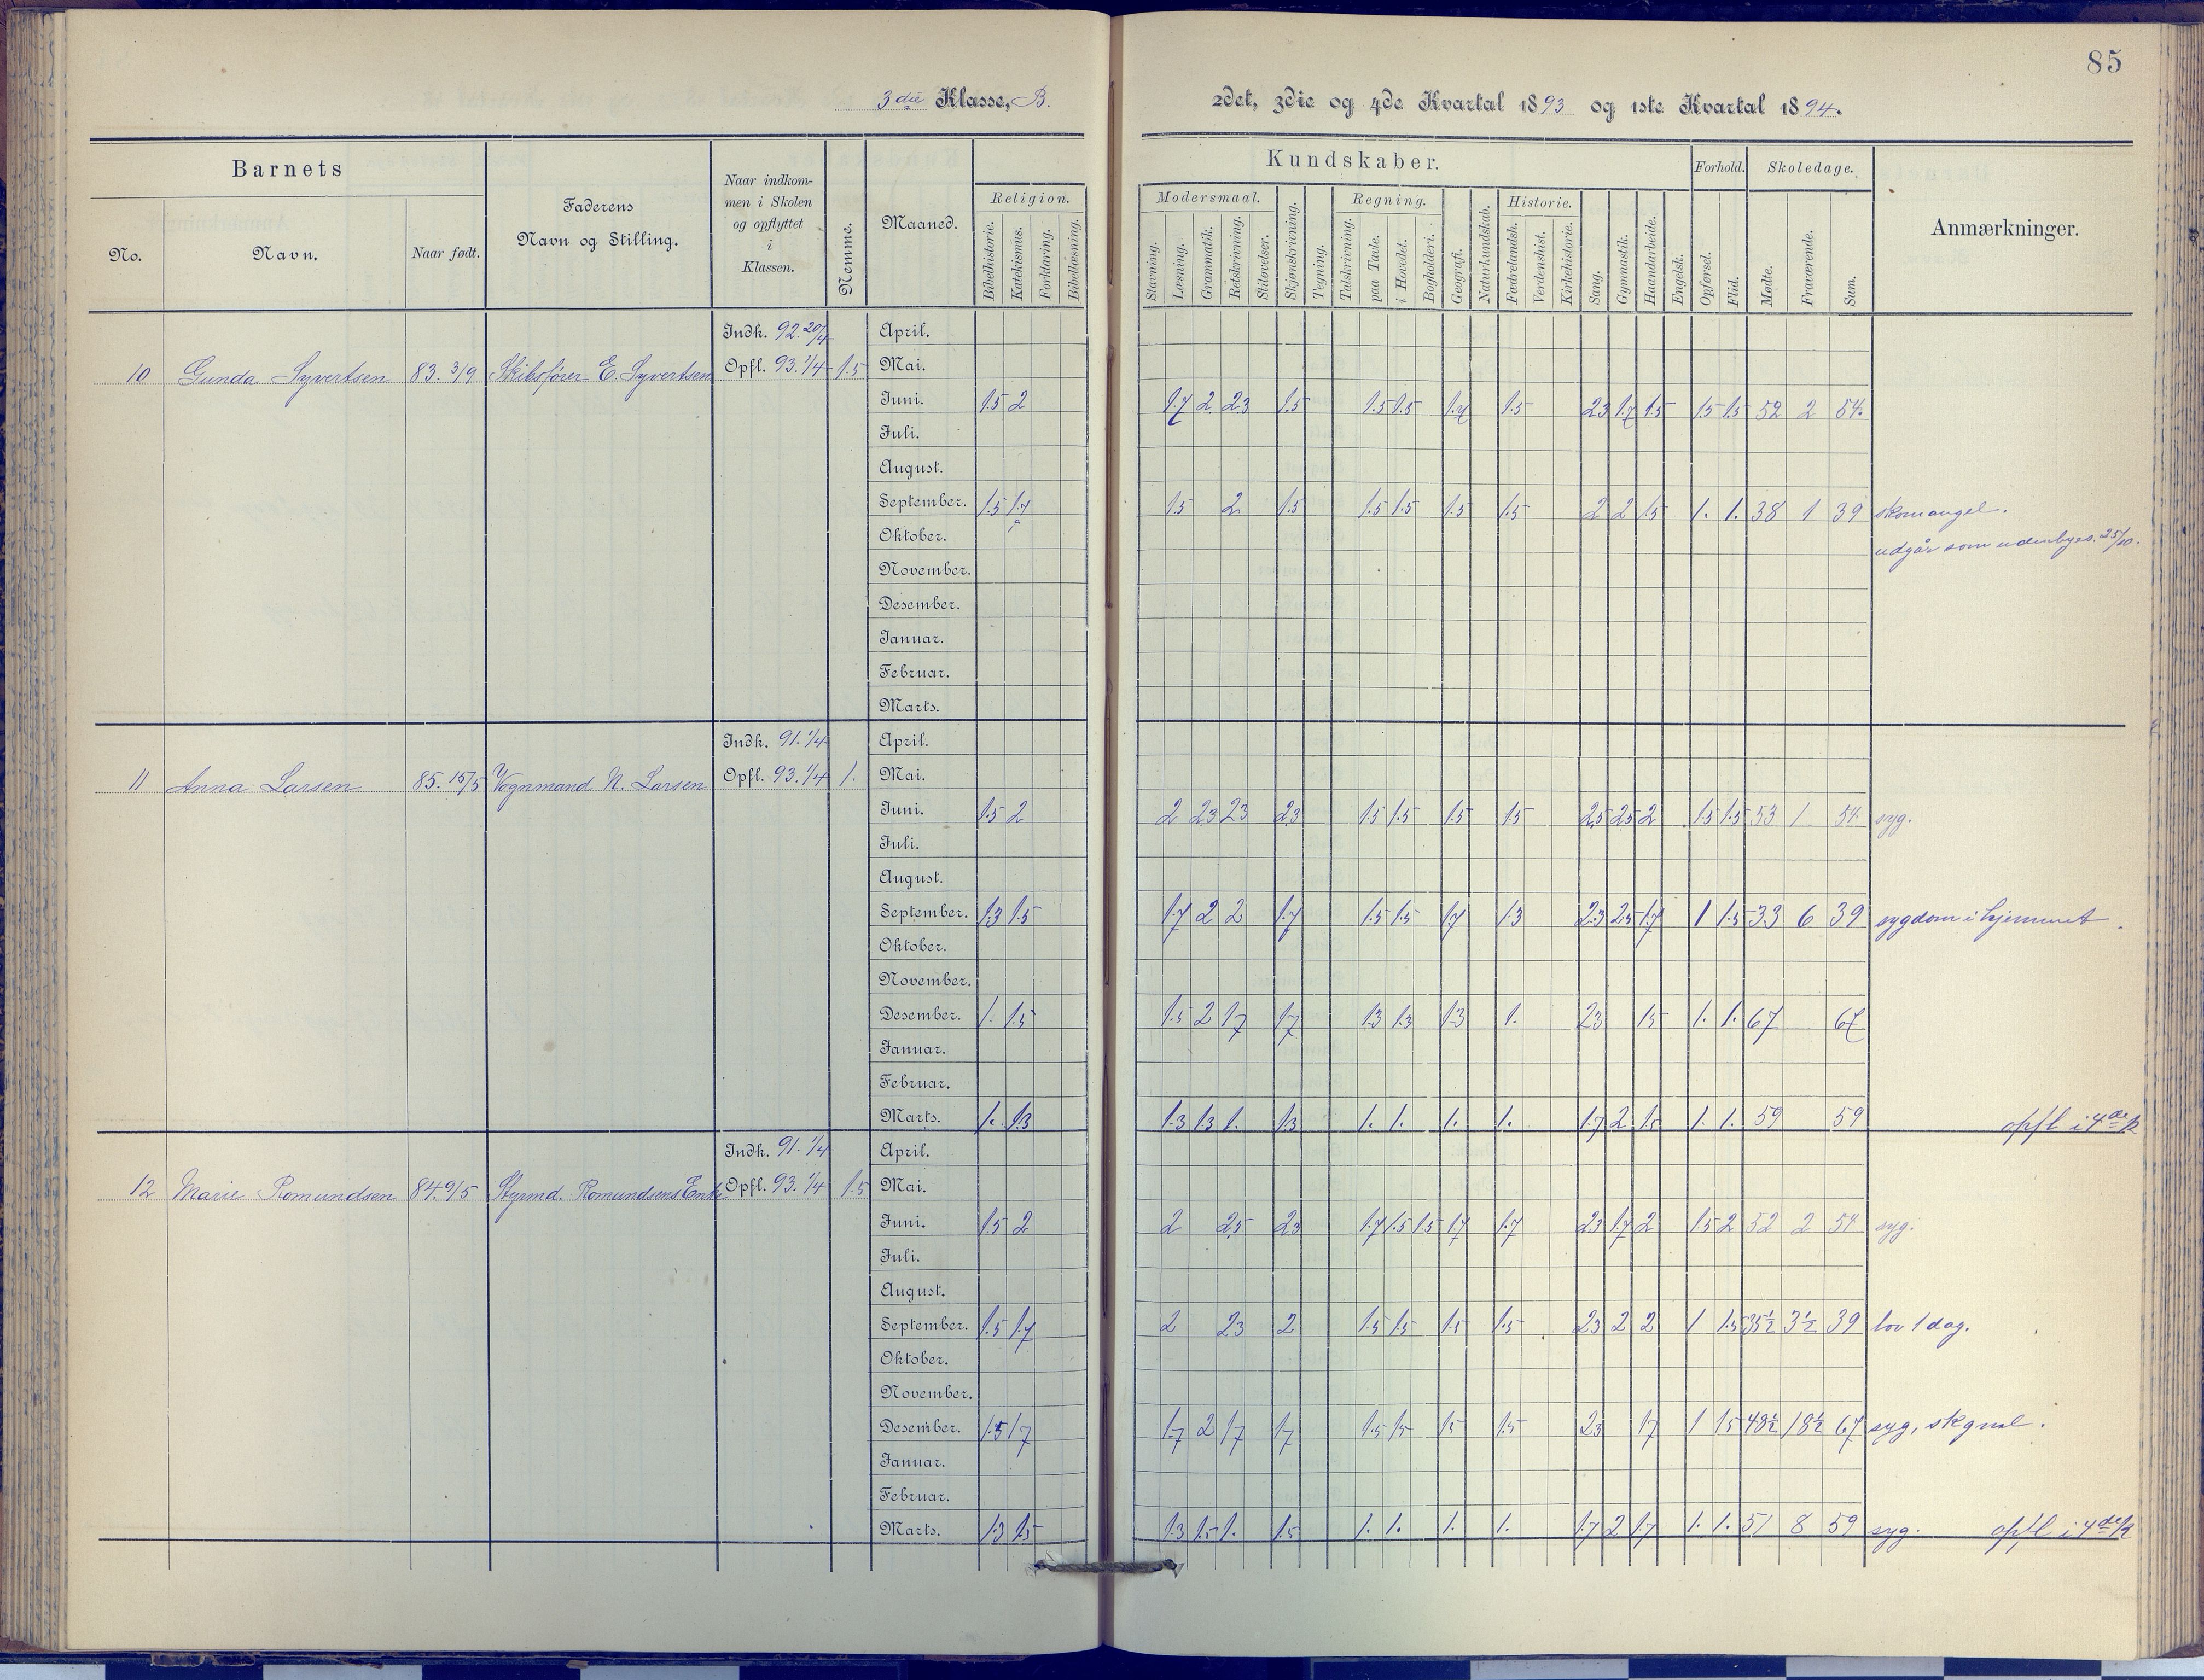 85
3die Klasse, B.
2det, 3die og 4de Kvartal 1893 og 1ste Kvartal 1894.
Barnets
No.
Navn.
Naar født.
Faderens
Navn og Stilling.
Naar indkom-
men i Skolen
og opflyttet
i
Klassen.
Nemme.
Maaned.
Religion.
Bibelhistorie.
Katekismus.
Forklaring.
Bibellæsning.
Kundskaber.
Modersmaal.
Stavning.
Læsning.
Grammatik.
Retskrivning.
Stiløvelser.
Skjønskrivning.
Tegning.
Regning.
Talskrivning.
paa Tavle.
i Hovedet.
Bogholderi.
Geografi.
Naturkundskab.
Historie.
Fædrelandsh.
Verdenshist.
Kirkehistorie.
Sang.
Gymnastik.
Haandarbeide.
Engelsk.
Forhold.
Opførsel.
Flid.
Skoledage.
Mødte.
Fraværende.
Sum.
Anmærkninger.
Indk. 92. 20/4 April.
10 Gunda Syvertsen 83. 3/9 Skibsfører E. Syvertsen Opfl. 93. 1/4 1.5 Mai.
Juni. 1.5 2 1.7 2 2.3 1.5 1.5 1.5 1.7 1.5 2.3 1.7 1.5 1.5 1.5 52 2 54
Juli.
August.
September. 1.5 1.7 1.5 2 1.5 1.5 1.5 1.5 1.5 2 2 1.5 1. 1. 38 1 39 skomangel.
Oktober. udgår som udenbyes. 25/10.
November.
Desember.
Januar.
Februar.
Marts.
Indk. 91. 1/4 April.
11 Anna Larsen 85. 15/5 Vognmand N. Larsen Opfl. 93. 1/4 1. Mai.
Juni. 1.5 2 2 2.3 2.3 2.3 1.5 1.5 1.5 1.5 2.5 2.5 2 1.5 1.5 53 1 54 syg.
Juli.
August.
September. 1.3 1.5 1.7 2 2 1.7 1.5 1.5 1.7 1.3 2.3 2.5 1.7 1 1.5 33 6 39 sygdom i hjemmet.
Oktober.
November.
Desember. 1. 1.5 1.5 2 1.7 1.7 1.3 1.3 1.3 1. 2.3 1.5 1. 1. 67 67
Januar.
Februar.
Marts. 1. 1.3 1.3 1.3 1. 1.3 1. 1. 1. 1. 1.7 2 1.5 1. 1. 59 59 opfl i 4de k
Indk. 91. 1/4 April.
12 Marie Romundsen 84. 9/5 Styrmd. Romundsens Enke Opfl. 93. 1/4 1.5 Mai.
Juni. 1.5 2 2 2.5 2.3 1.7 1.5 1.5 1.7 1.7 2.3 1.7 2 1.5 2 52 2 54 syg.
Juli.
August.
September. 1.5 1.7 2 2.3 2 1.5 1.5 1.5 1.5 2.3 2 2 1 1.5 35½ 3½ 39 lov 1 dag.
Oktober.
November.
Desember. 1.5 1.7 1.7 2 1.7 1.7 1.5 1.5 1.5 1.5 2.3 1.7 1 1.5 48½ 18½ 67 syg,
Januar.
Februar.
Marts. 1.3 1.5 1.3 1.5 1. 1.5 1. 1. 1. 1. 1.7 2 1.7 1. 1. 51 8 59 syg. opfl i 4de k